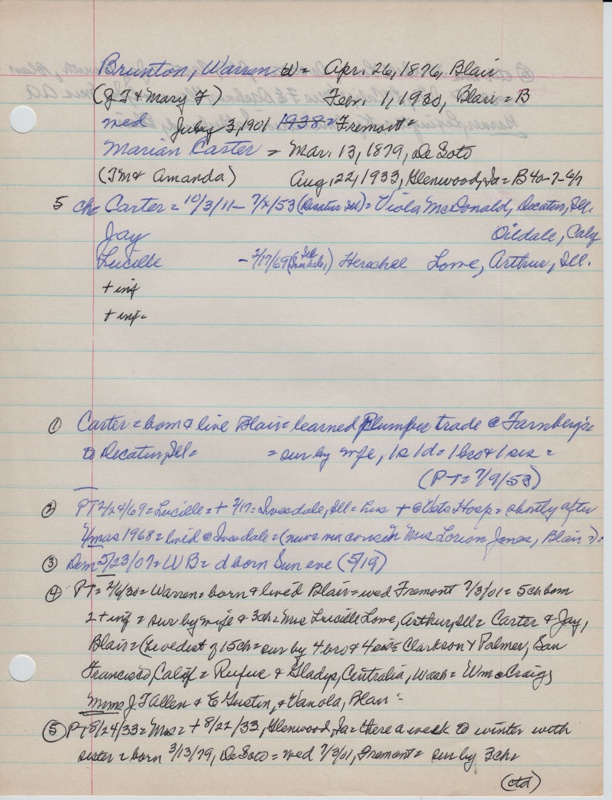 Brunton, Warren W = Apr. 26, 1876, Blair
(J T & Mary F) Feb. 1, 1930, Blair = B
wed July 3, 1901 1938 = Fremont =
Marian Carter = Mar. 13, 1879, De Soto
(T M & Amanda) Aug. 22, 1933, Glenwood, Ia = B 40-7-
5 ch Carter = 10/3/11 - 7/2/53 (Decatur Ill) = Viola McDonald, Decatur, Ill.
Jay Oildale, Calif
Lucille - 2/17/69 Herschel Lowe, Arthur, Ill.
+ inf
+ inf -
① Carter = born & live Blair = learned Plumber trade @
to Decatur, Ill = = sur by wife, 1s 1d = 1 bro & 1 sis =
(PT = 7/9/53)
② PT 2/24/69 = Lucille = + 2/17 = Ill = hus + @ Vets Hosp = shortly after
Xmas 1968 = lived @ = (news was Mrs Jones, Blair) =
③ Dem 5/23/07 = WB = d born Sun eve (5/19)
④ PT = 2/6/30 = Warren = born & lived Blair = wed Fremont 7/3/01 = 5 ch born
2 + inf = sur by wife & 3 ch = Mrs Lucille Lowe, Arthur, Ill = Carter & Jay,
Blair = (he oldest of 15 ch = sur by 4 bro & 4 sis = Clarkson & Palmer, San
Francisco, Calif = Rufus & Gladys, Centralia, Wash = Wm Craig,
Mmes J T Allen & E Gustin, & Vanola, Blair =
⑤ PT 8/24/33 = Mrs = + 8/22/33, Glenwood, Ia = there a week to winter with
sister = born 3/13/79, De Soto = wed 7/3/01, Fremont = sur by 3 ch =
(ctd)